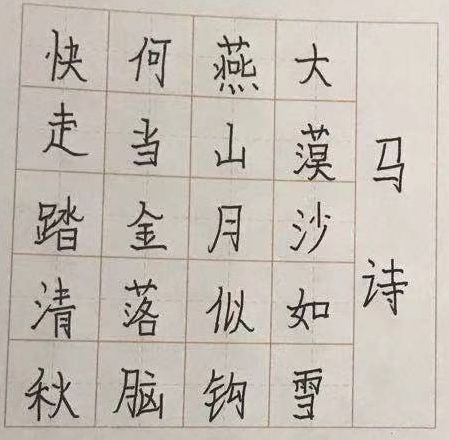 马诗
大漠沙如雪
燕山月似钩
何当金落脑
快走踏清秋